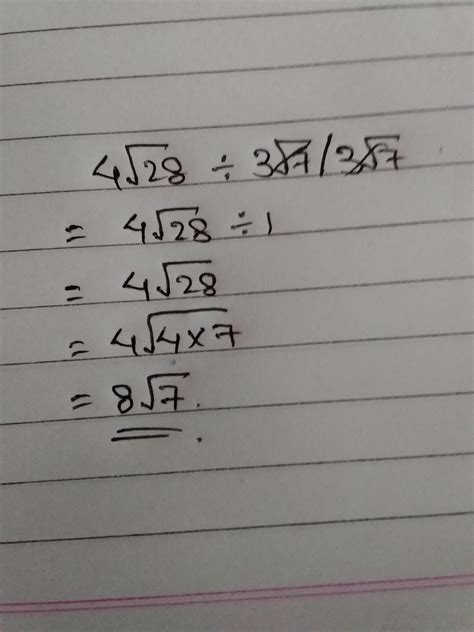 4√28 ÷ 3√7/3√7
= 4√28 ÷ 1
= 4√28
= 4√4×7
= 8√7.